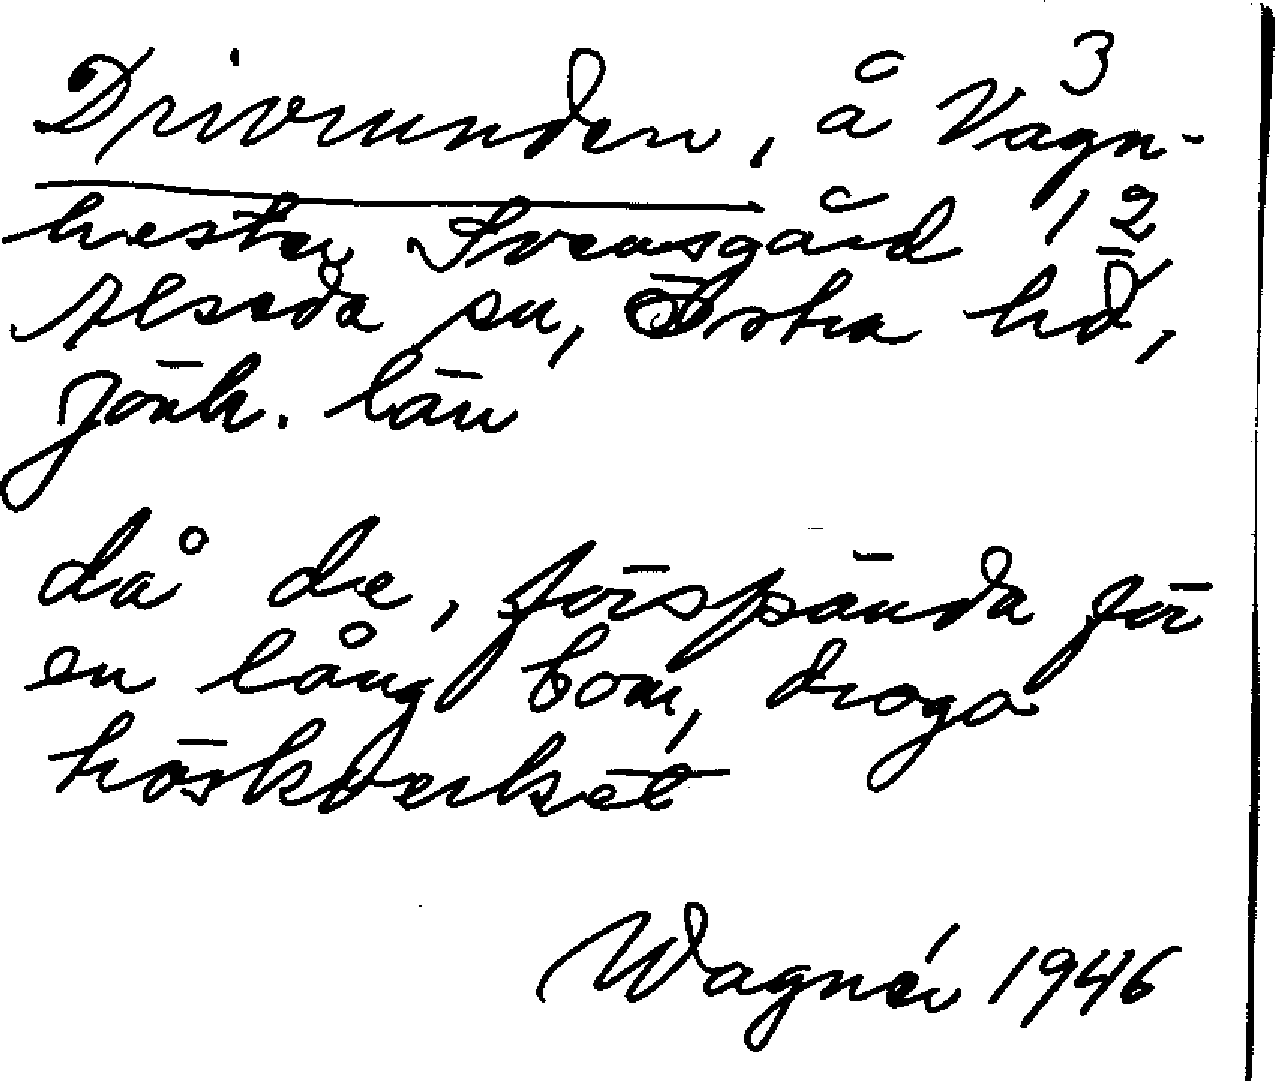 3
Drivrunden, å Vagn-
hester Svensgård 1 2
Alseda sn, Östra hd,
Jönk. län
då de, förspända för
en lång bom, droga
tröskverket
Wagnér 1946